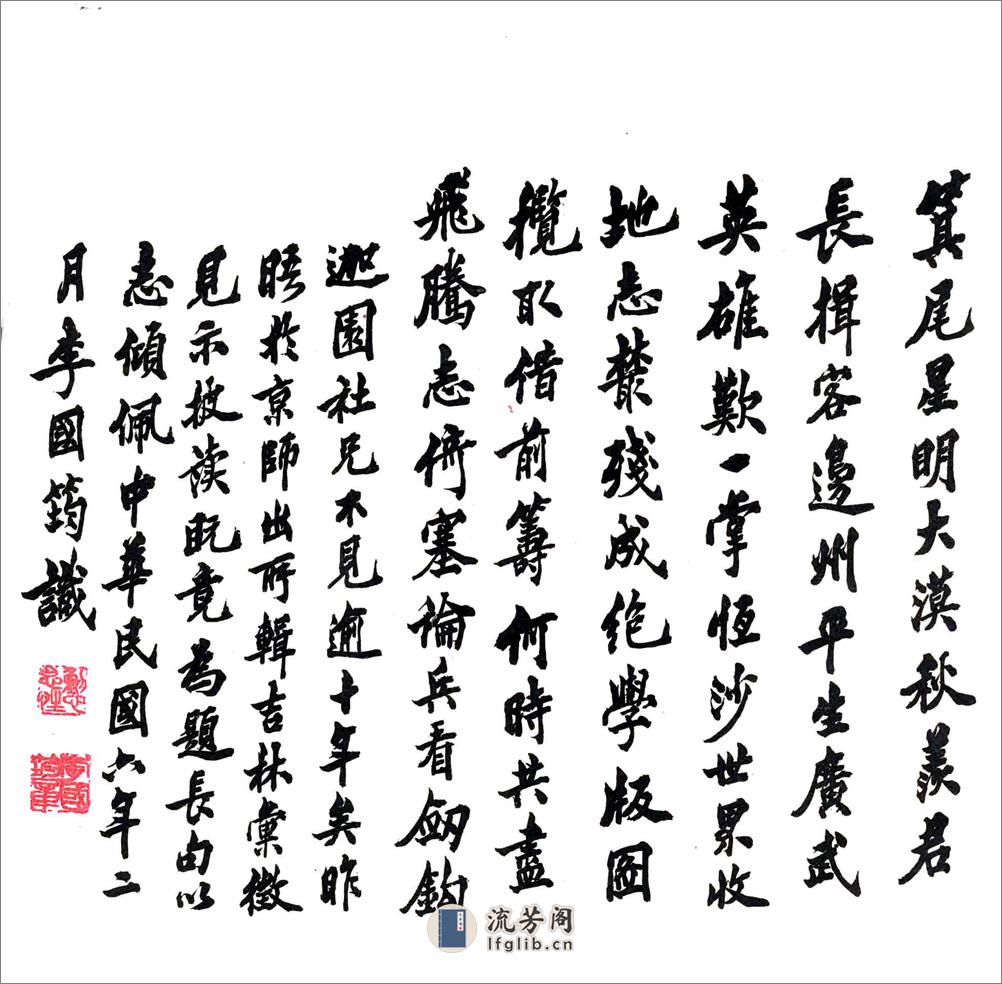 箕尾星明大漠秋羨君
長揖客邊州平生廣武
英雄歎一掌恆沙世界收
地志叢殘成絶學版圖
攬取借前籌何時共盡
飛騰志倚塞論兵看劒鉤
迦園社兄不見逾十年矣昨
晤於京師出所輯吉林彙徵
見示披讀既竟為題長句以
志傾佩中華民國六年二
月李國筠識
李國筠章
流芳阁
lfglib.cn